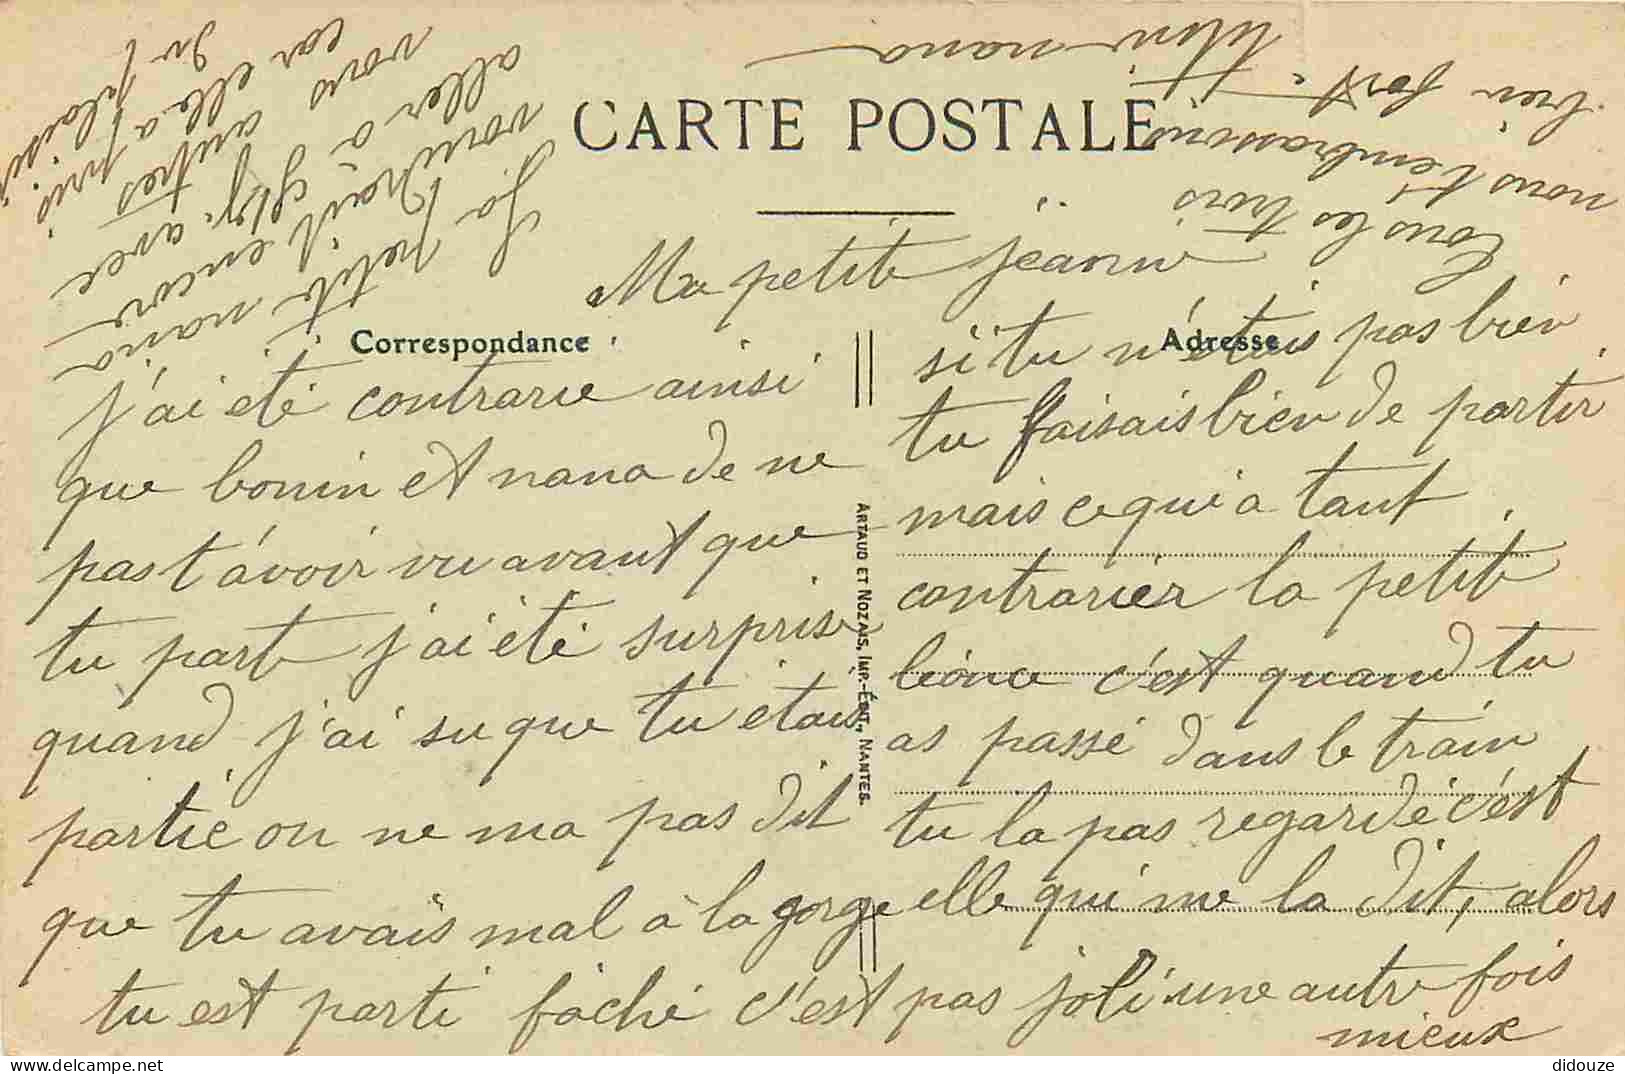 CARTE POSTALE
Ma petite jeanine
Correspondance
Adresse
j'ai été contrarié ainsi
que bonin et nana de ne
pas t'avoir vu avant que
tu part j'ai été surprise
quand j'ai su que tu étais
partie on ne ma pas dit
que tu avais mal à la gorge
tu est parti faché c'est pas joli une autre fois
mieux
si tu n'étais pas bien
tu faisais bien de partir
mais ce qui a tant
contrarier la petite
c'est quand tu
as passé dans le train
tu la pas regardé c'est
elle qui me la dit, alors
ARTAUD ET NOZAIS, IMP.-ÉDIT., NANTES.
La petite nana
voudrait encore
aller a avec
vous autres
car elle a pris
du plaisir
Tous les trois
nous t'embrassons
bien fort
nana
didouze